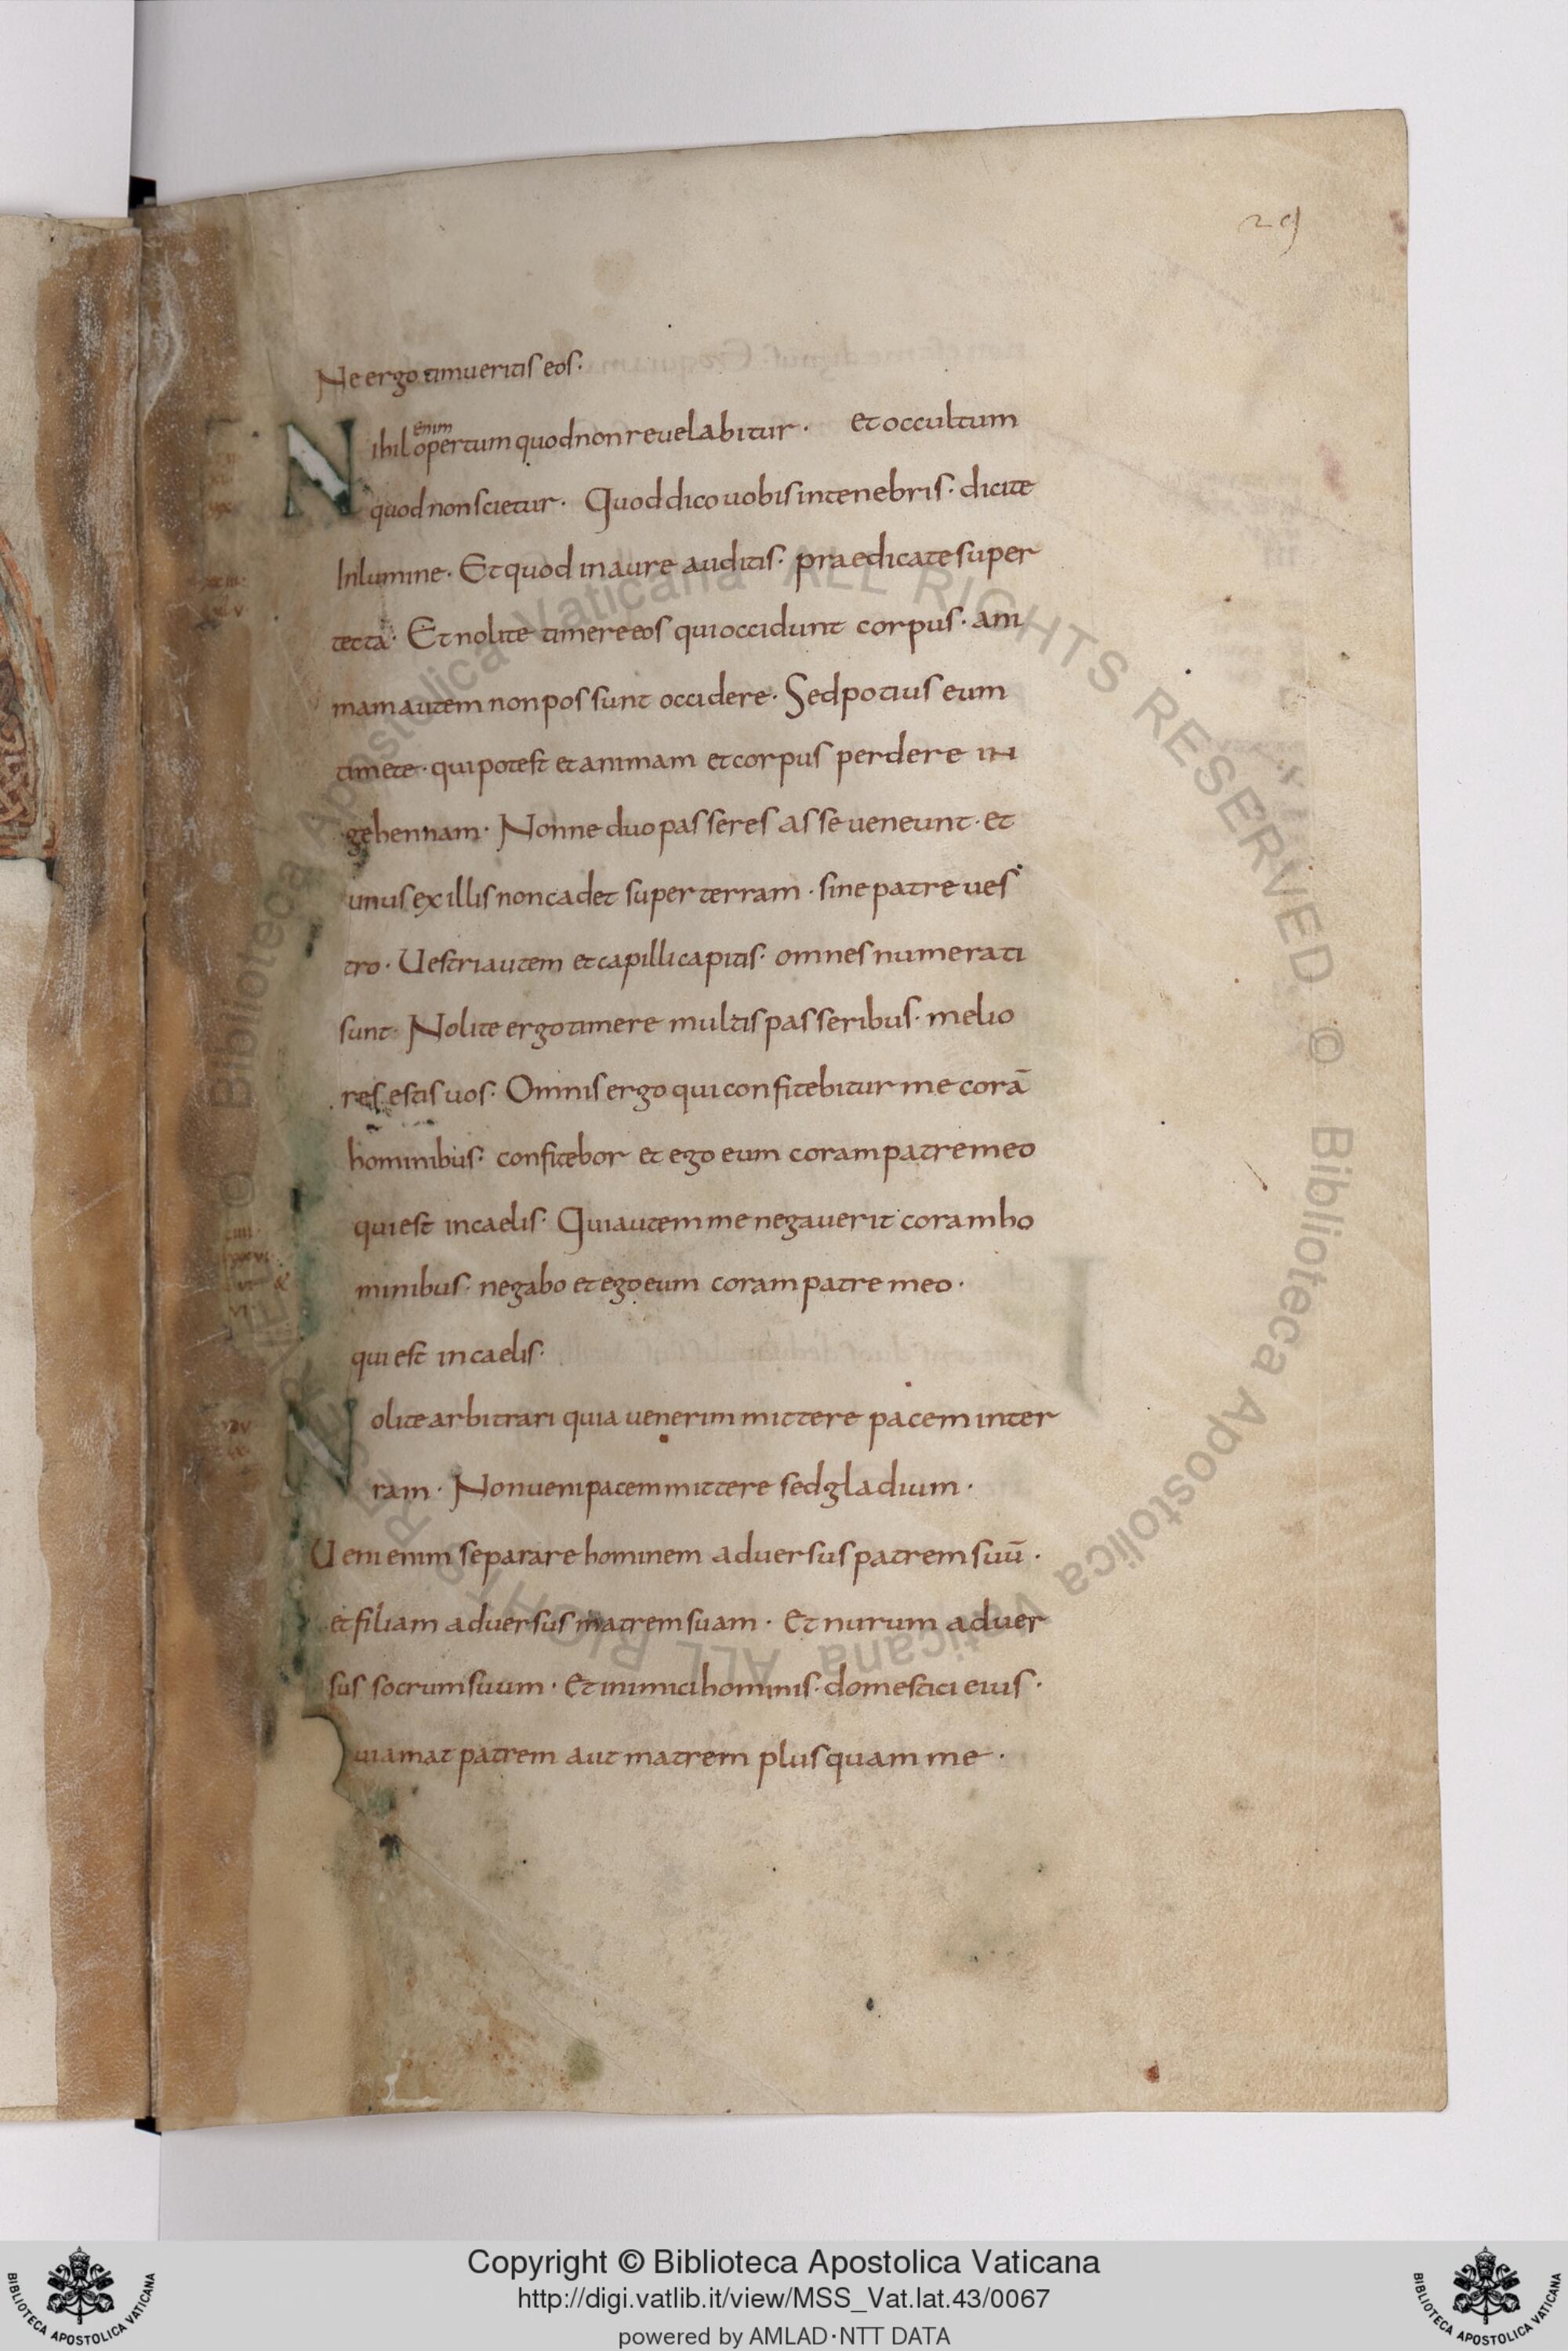 29
Ne ergo timueritis eos·
enim
Nihil opertum quod non reuelabitur· et occultum
quod non scietur· Quod dico uobis in tenebris· dicite
In lumine· Et quod in aure auditis· praedicate super
tecta· Et nolite timere eos qui occidunt corpus· ani
mam autem non possunt occidere· Sed potius eum
timete· qui potest et animam et corpus perdere in
gehennam· Nonne duo passeres asse ueneunt· et
unus ex illis non cadet super terram· sine patre ues
tro· Uestri autem et capilli capitis· omnes numerati
sunt· Nolite ergo timere multis passeribus· melio
res estis uos· Omnis ergo qui confitebitur me corā
hominibus· confitebor et ego eum coram patre meo
qui est in caelis· Qui autem me negauerit coram ho
minibus· negabo et ego eum coram patre meo·
qui est in caelis·
Nolite arbitrari quia uenerim mittere pacem in ter
ram· Non ueni pacem mittere sed gladium·
Ueni enim separare hominem aduersus patrem suū·
et filiam aduersus matrem suam· Et nurum aduer
sus socrum suum· Et inimici hominis· domestici eius·
Qui amat patrem aut matrem plus quam me·
© Biblioteca Apostolica Vaticana ALL RIGHTS RESERVED © Biblioteca Apostolica Vaticana ALL RIGHTS RESERVED
Copyright © Biblioteca Apostolica Vaticana
http://digi.vatlib.it/view/MSS_Vat.lat.43/0067
powered by AMLAD·NTT DATA
BIBLIOTECA APOSTOLICA VATICANA
BIBLIOTECA APOSTOLICA VATICANA